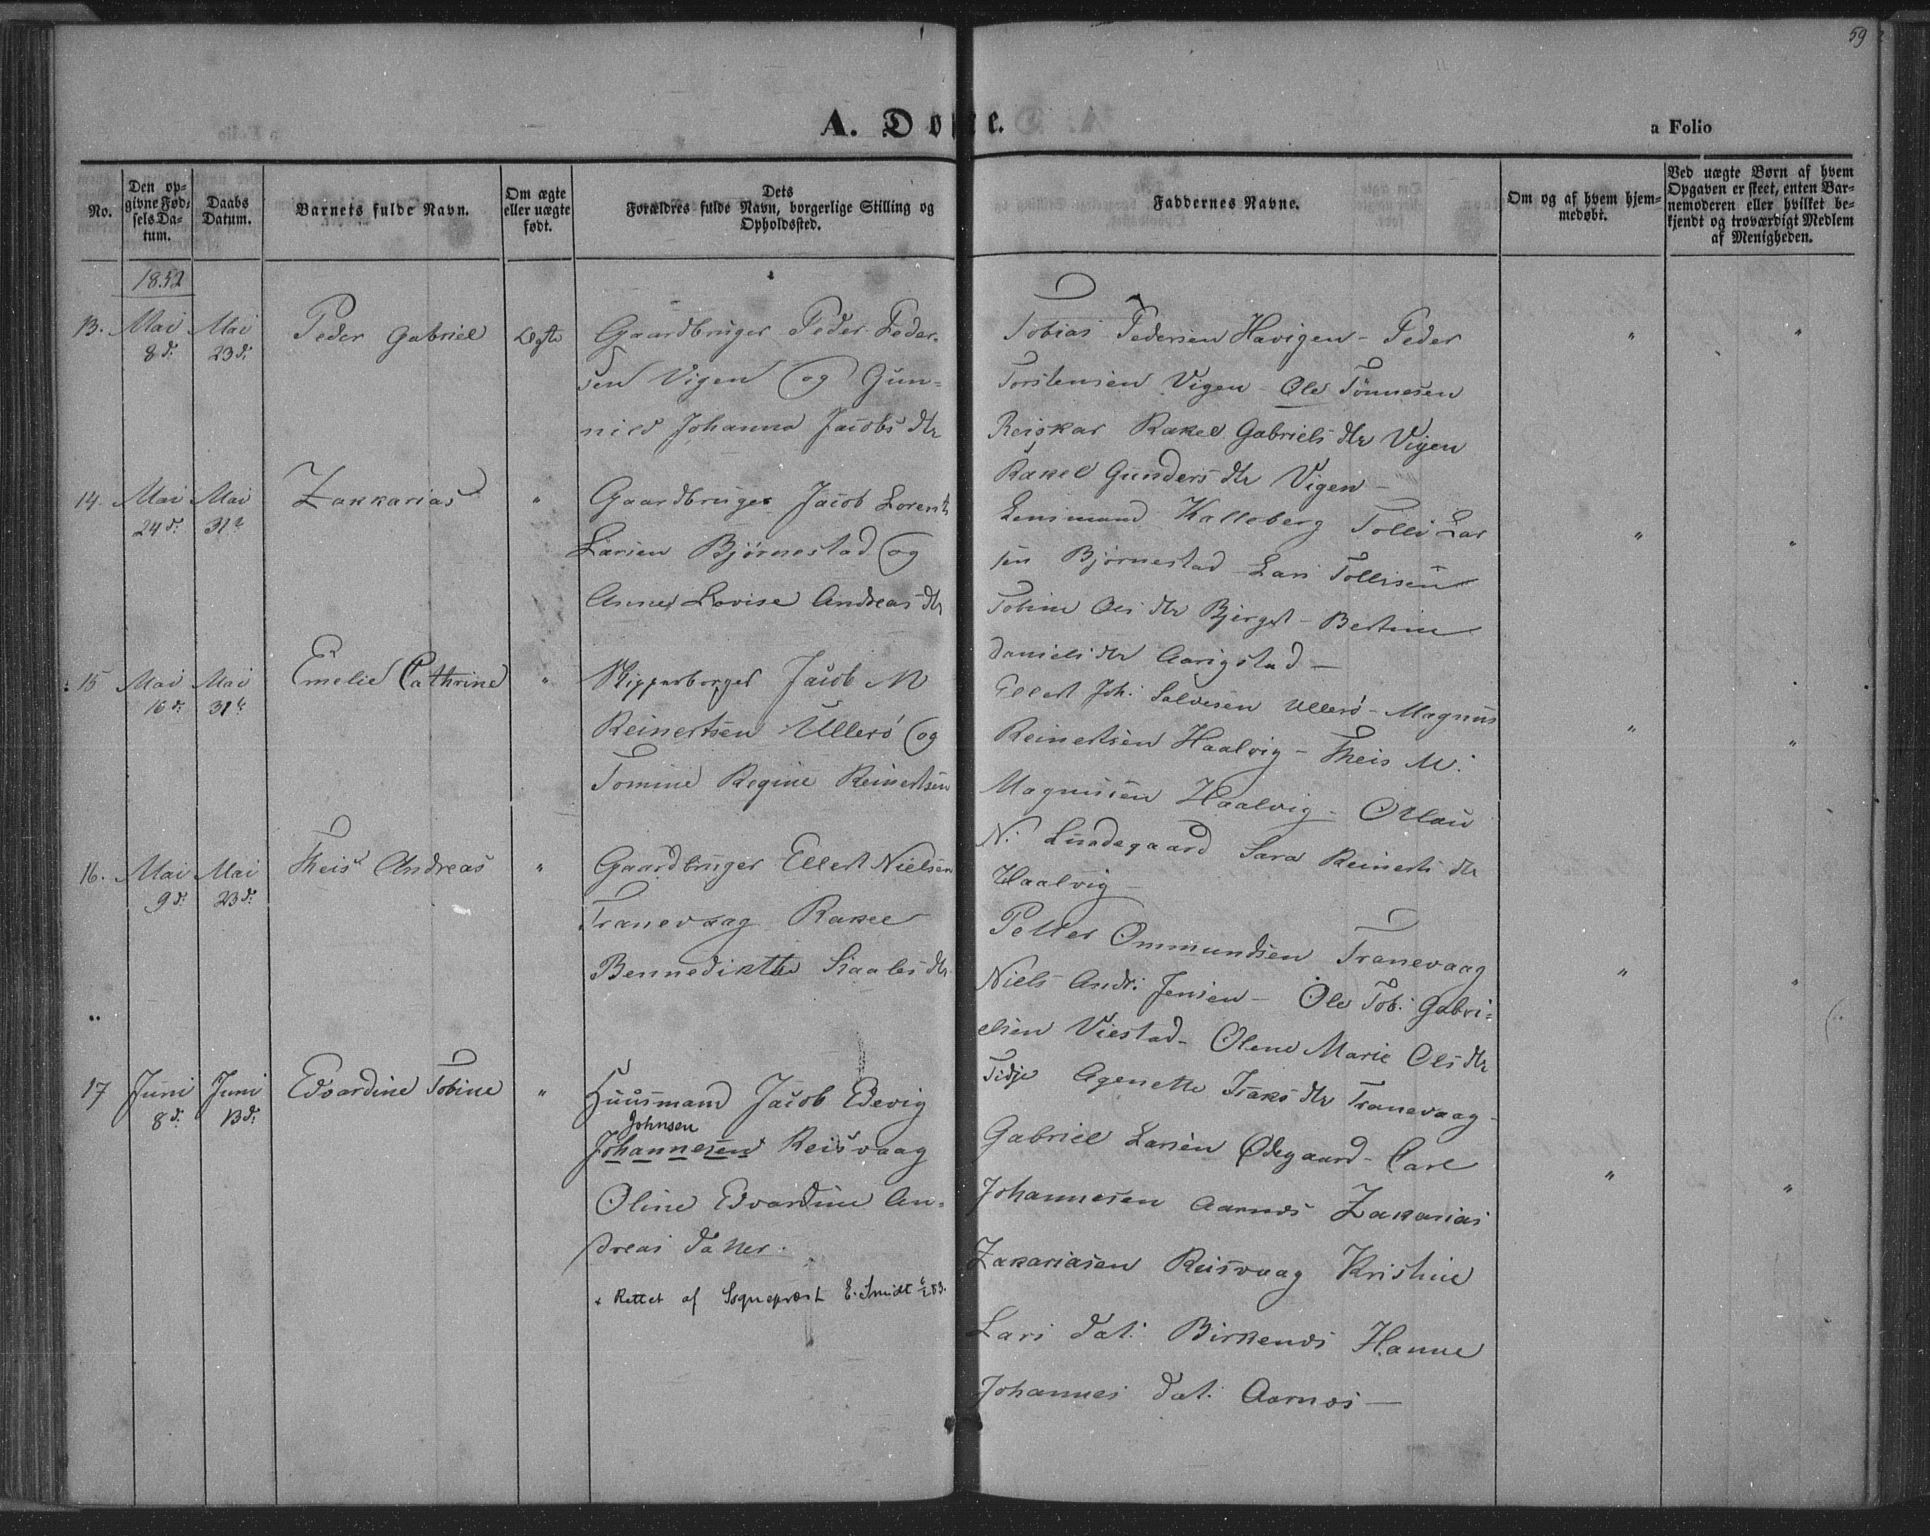 59
A. Døbte.
a Folio
No.
Den op-
givne Fød-
sels Da-
tum.
Daabs
Datum.
Barnets fulde Navn.
Om ægte
eller uægte
født.
Dets
Forældres fulde Navn, borgerlige Stilling og
Opholdssted.
Faddernes Navne.
Om og af hvem hjem-
medøbt.
Ved uægte Børn af hvem
Opgaven er skeet, enten Bar-
nemoderen eller hvilket be-
kjendt og troværdigt Medlem
af Menigheden.
1852
13. Mai 8d. Mai 23d. Peder Gabriel Ægte
Gaardbruger Peder Peder-
sen Vigen og Gun-
nild Johanna Jacobs dtr
Tobias Pedersen Havigen - Peder
Torstensen Vigen - Ole Tönnesen
Reiskar Rakel Gabriels dtr Vigen
Rakel Gunders dtr Vigen -
" "
14. Mai 24d. Mai 31te Zakkarias "
Gaardbruger Jacob Lorents
Larsen Bjørnestad og
Anne Lovise Andreas dtr
Lensmand Kalleberg Tolli Lar
sen Bjørnestad - Lars Tollisen
Tobine Ols dtr Bjerget - Bertine
Daniels dtr Aarigstad -
" "
15 Mai 16d. Mai 31te Emelie Cathrine "
Skipperborger Jacob M
Reinertsen Ullerö og
Tomine Regine Reinertsen
Ellert Joh. Salvesen Ullerö - Magnus
Reinertsen Haalvig - Theis M.
Magnusen Haalvig - Ollau
N. Lundegaard Sara Reinerts dtr
Haalvig -
" "
16. Mai 9d. Mai 23d. Theis Andreas "
Gaardbruger Ellert Nielsen
Tranevaag Rakel
Bennedikte Siaales dtr
Petter Ommundsen Tranevaag
Niels Andr. Jensen - Ole Tob. Gabri-
elsen Viestad - Olene Marie Ols dtr
Tidje Agenette Isaks dtr Tranevaag -
" "
17 Juni 8d. Juni 13d. Edvardine Tobine "
Huusmand Jacob Edevig
Johnsen
Johannesen Reisvaag
Oline Edvardine An-
dreas datter.
x Rettet af Sogneprest E. Smidt
Gabriel Larsen Ødegaard - Carl
Johannesen Aarnes Zakarias
Zakariasen Reisvaag Kristine
Lars dat. Birkenes Hanne
Johannes dat. Aarnes -
" "